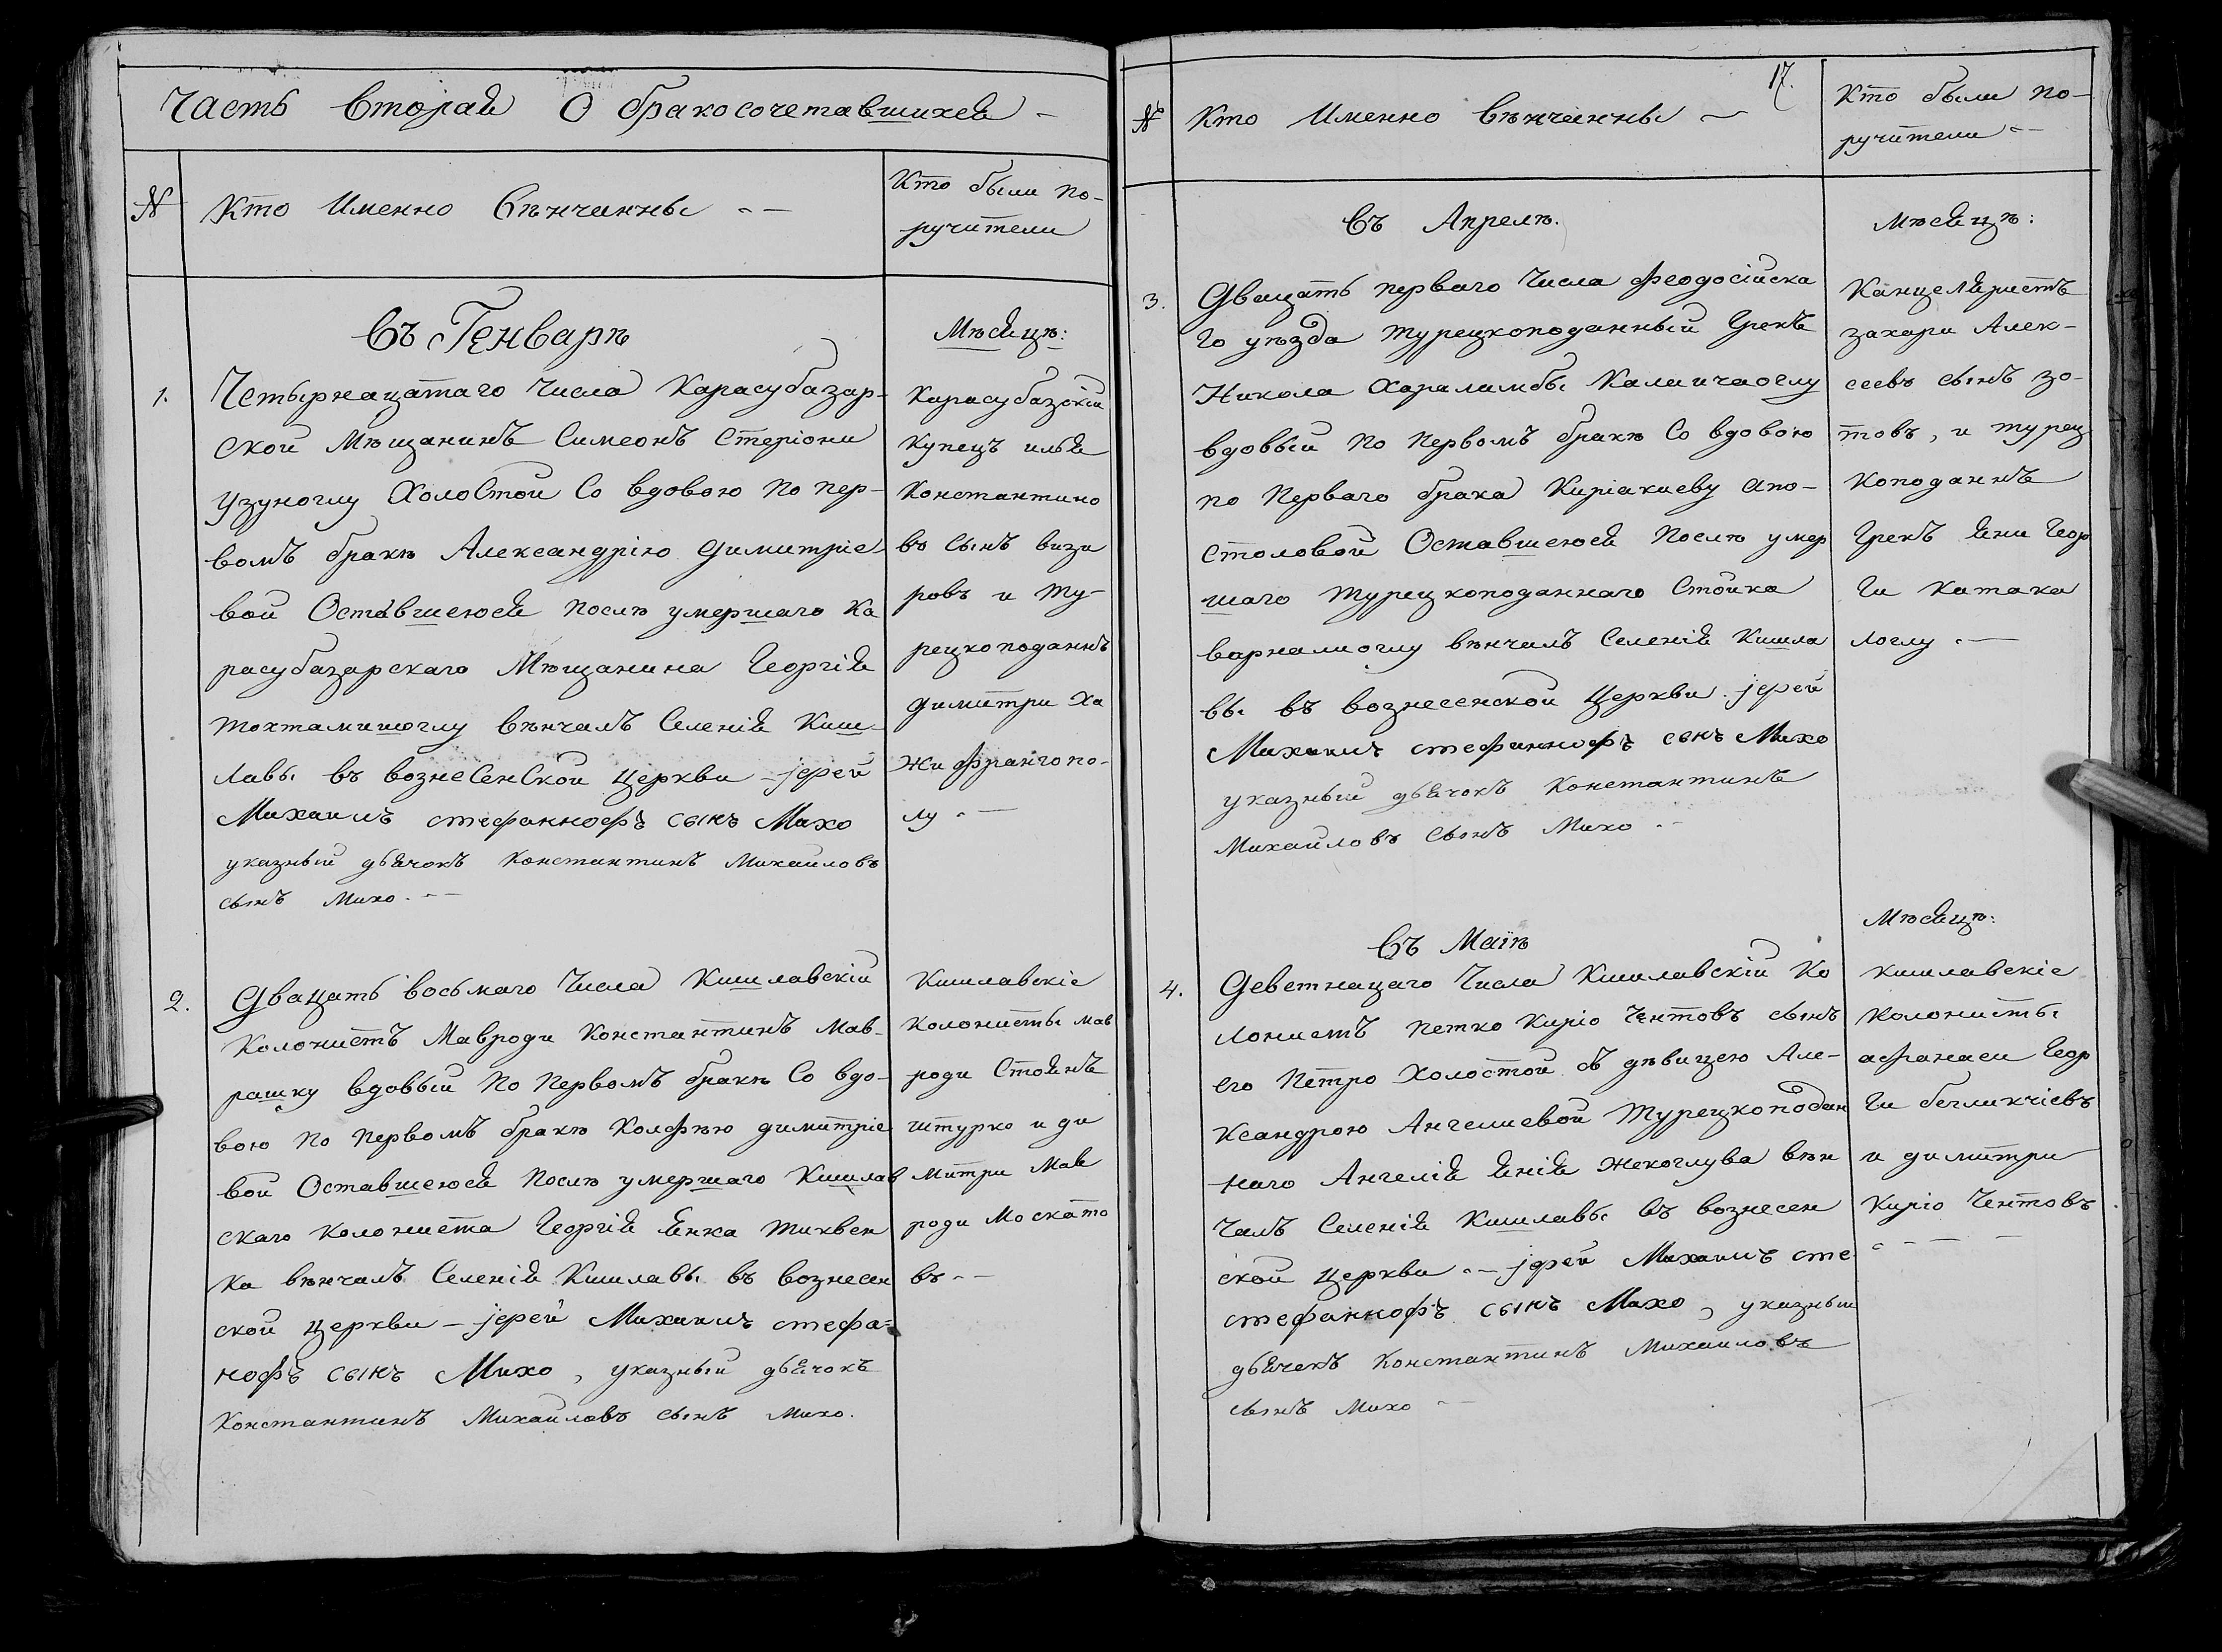 Часть Вторая О бракосочетавшихся
№ Кто Именно Вѣнчанны
Кто были по-
ручители
Въ Генварѣ
Мѣсяцѣ:
1.
Четырнацатаго Числа Карасубазар-
ской Мѣщанинъ Симеонъ Стеріони
Узуноглу Холостой Со вдовою По пер-
вомъ бракѣ Александрію Димитріе
вой Оставшеюся послѣ умершаго Ка
расубазарскаго Мѣщанина Георгія
тохтамишоглу вѣнчалъ Селенія Киш-
лавы въ вознесенской церкви - јерей
Михаилъ стефанноѳъ сынъ Михо
указный дьячокъ Константинъ Михайловъ
сынъ Михо.
Карасубазскій
Купецъ илья
Константино
въ Сынъ визи
ровъ и Ту-
рецкоподаннъ
Димитри Ха
жи Франгопо-
лу
2.
Двацать восьмаго Числа Кишлавскій
Колонистъ Мавроди Константинъ Мав-
рашку вдовый По Первомъ бракѣ Со вдо-
вою по первомъ бракѣ Колфѣю димитріе
вой Оставшеюся Послѣ умершаго Кишлав
скаго колониста Георгія Янка тихвен
ка вѣнчалъ Селенія Кишлавы въ вознесен
ской церкви - јерей Михаилъ стефа=
нофъ сынъ Михо, указный дьячокъ
Константинъ Михайловъ сынъ Михо.
Кишлавскіе
Колонисты мав
роди Стоянъ
штурко и ди
митри Мав
роди Москато
въ
17.
№ Кто Именно Вѣнчанны
Кто были по-
ручители
Въ Апрелѣ.
Мѣсяцѣ:
3.
Двацать перваго Числа феодосійска
го уѣзда турецкоподанный Грекъ
Никола Хараламбы Калпчаоглу
вдовый По Первомъ бракѣ Со вдовою
по Перваго брака Киріакиеву апо-
столовой Оставшеюся Послѣ умер
шаго турецкоподаннаго Стойка
варналиоглу вѣнчалъ Селенія Кишла
вы въ вознесенской церкви. јерей
Михаилъ стефаннофъ сынъ Михо
указный дьячокъ Константинъ
Михайловъ Сынъ Михо
Канцеляристъ
захари Алек-
сеевъ сынъ зо-
товъ, и турец
коподаннъ
Грекъ Яни Геор
ги катака
логлу
Въ Маіѣ
Мѣсяцѣ:
4.
Деветнацаго Числа Кишлавскій Ко
лонистъ петко Киріо Чентовъ сынъ
его Петро Холостой съ дѣвицею Але-
ксандрою Ангелиевой Турецкоподан
наго Ангелія Янія жекоглува вѣн
чалъ Селенія Кишлавы въ вознесен
ской церкви јерей Михаилъ сте
стефаннофъ сынъ Михо, указный
дьячекъ Константинъ Михайловъ
сынъ Михо
кишлавскіе
колонисты
афанаси Геор
ги бегликчіевъ
и димитри
Киріо Чентовъ